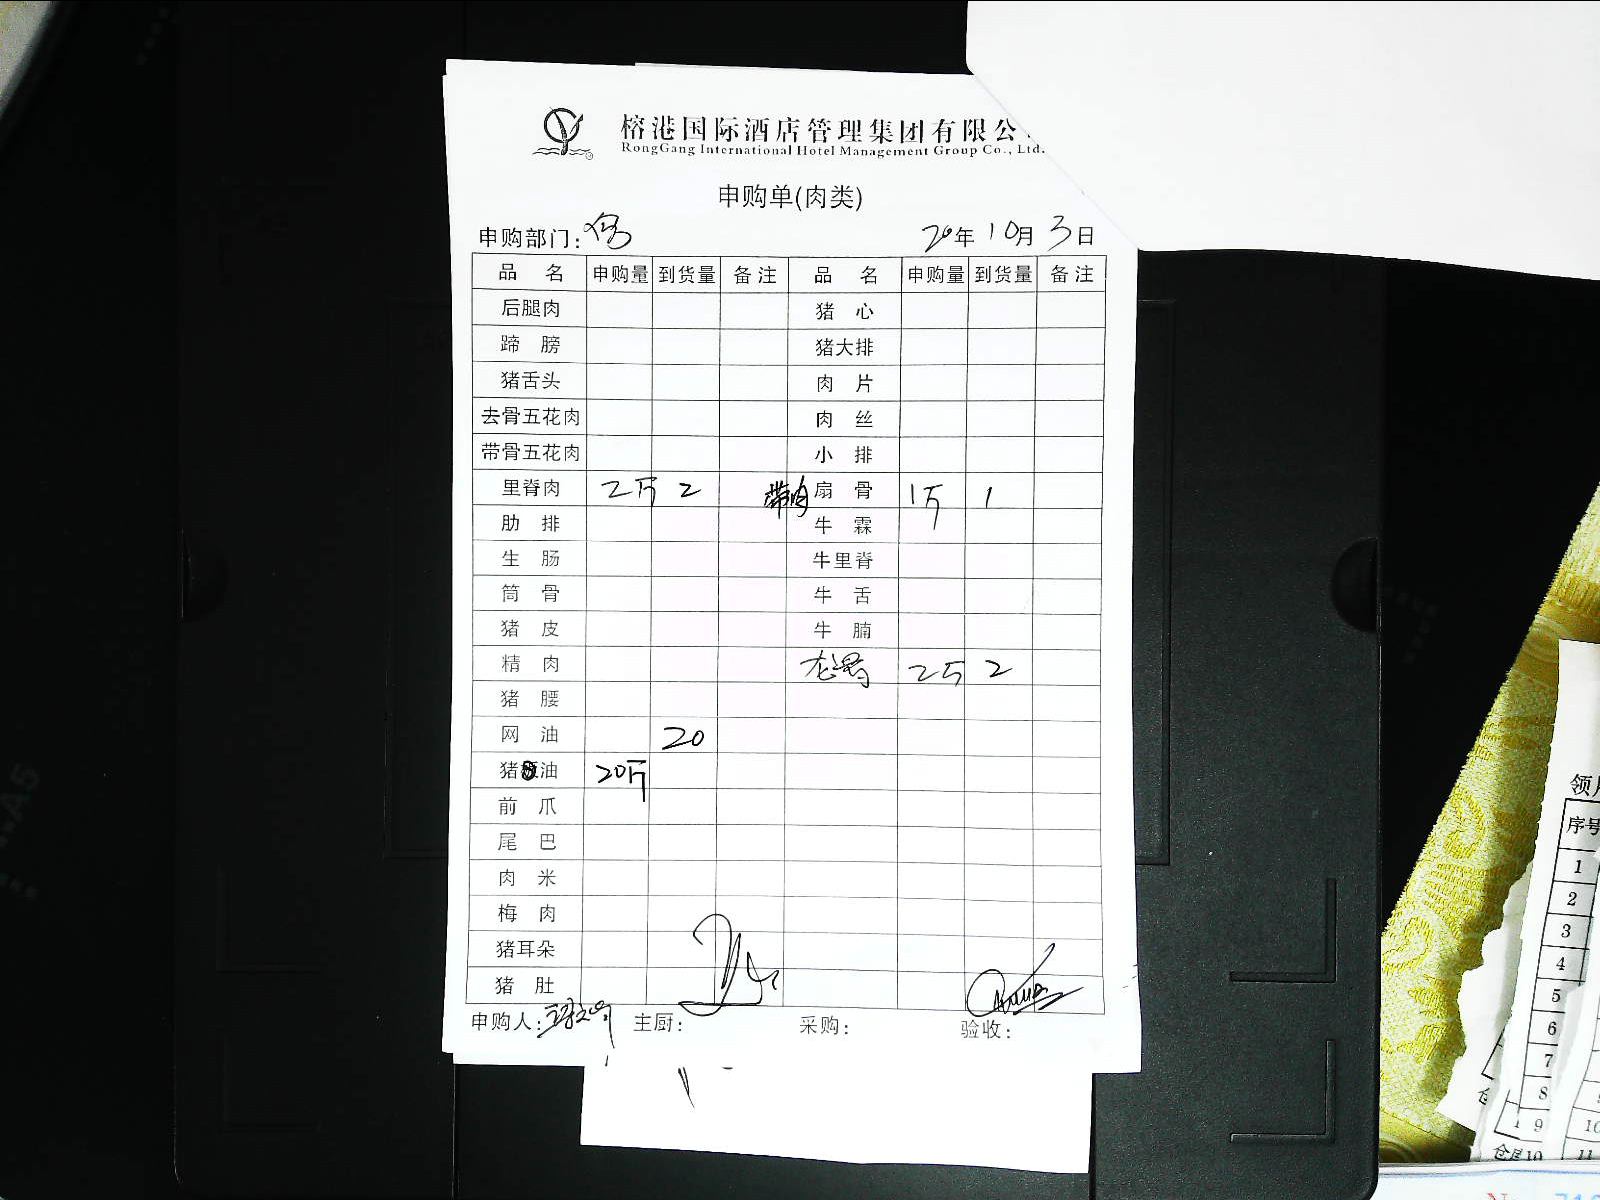 榕港国际酒店管理集团有限公
RongGang International Hotel Management Group Co., Ltd.
申购单(肉类)
申购部门: 20年 10月 3日
品 名 申购量 到货量 备注 品 名 申购量 到货量 备注
后腿肉 猪 心
蹄 膀 猪大排
猪舌头 肉 片
去骨五花肉 肉 丝
带骨五花肉 小 排
里脊肉 2斤 2 带肉 扇 骨 1斤 1
肋 排 牛 霖
生 肠 牛里脊
筒 骨 牛 舌
猪 皮 牛 腩
精 肉 龙骨 2斤 2
猪 腰
网 油 20
猪 油 20斤
前 爪
尾 巴
肉 米
梅 肉
猪耳朵
猪 肚
申购人: 主厨: 采购: 验收:
领
序号
1
2
3
4
5
6
7
8
9 10
10 11